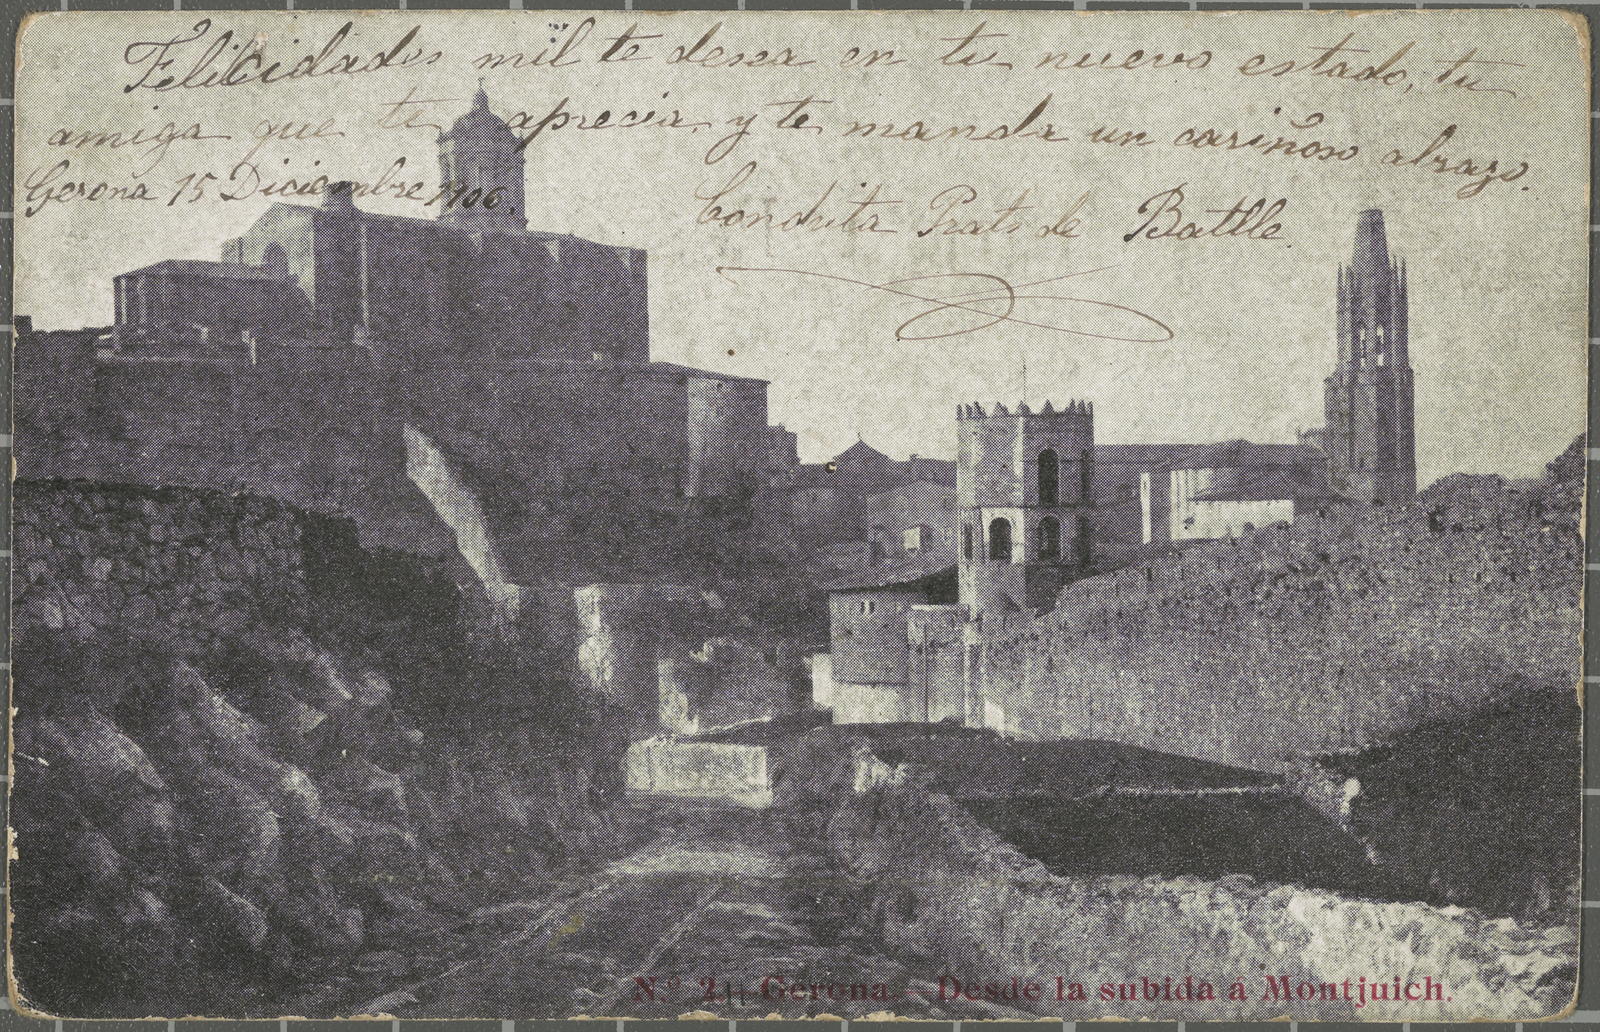 Felicidades mil te desea en tu nuevo estado, tu
amiga que te aprecia, y te manda un cariñoso abrazo.
Gerona 15 Diciembre 1906.
Conchita Prats de Batlle
N.º 2.—Gerona.—Desde la subida á Montjuich.